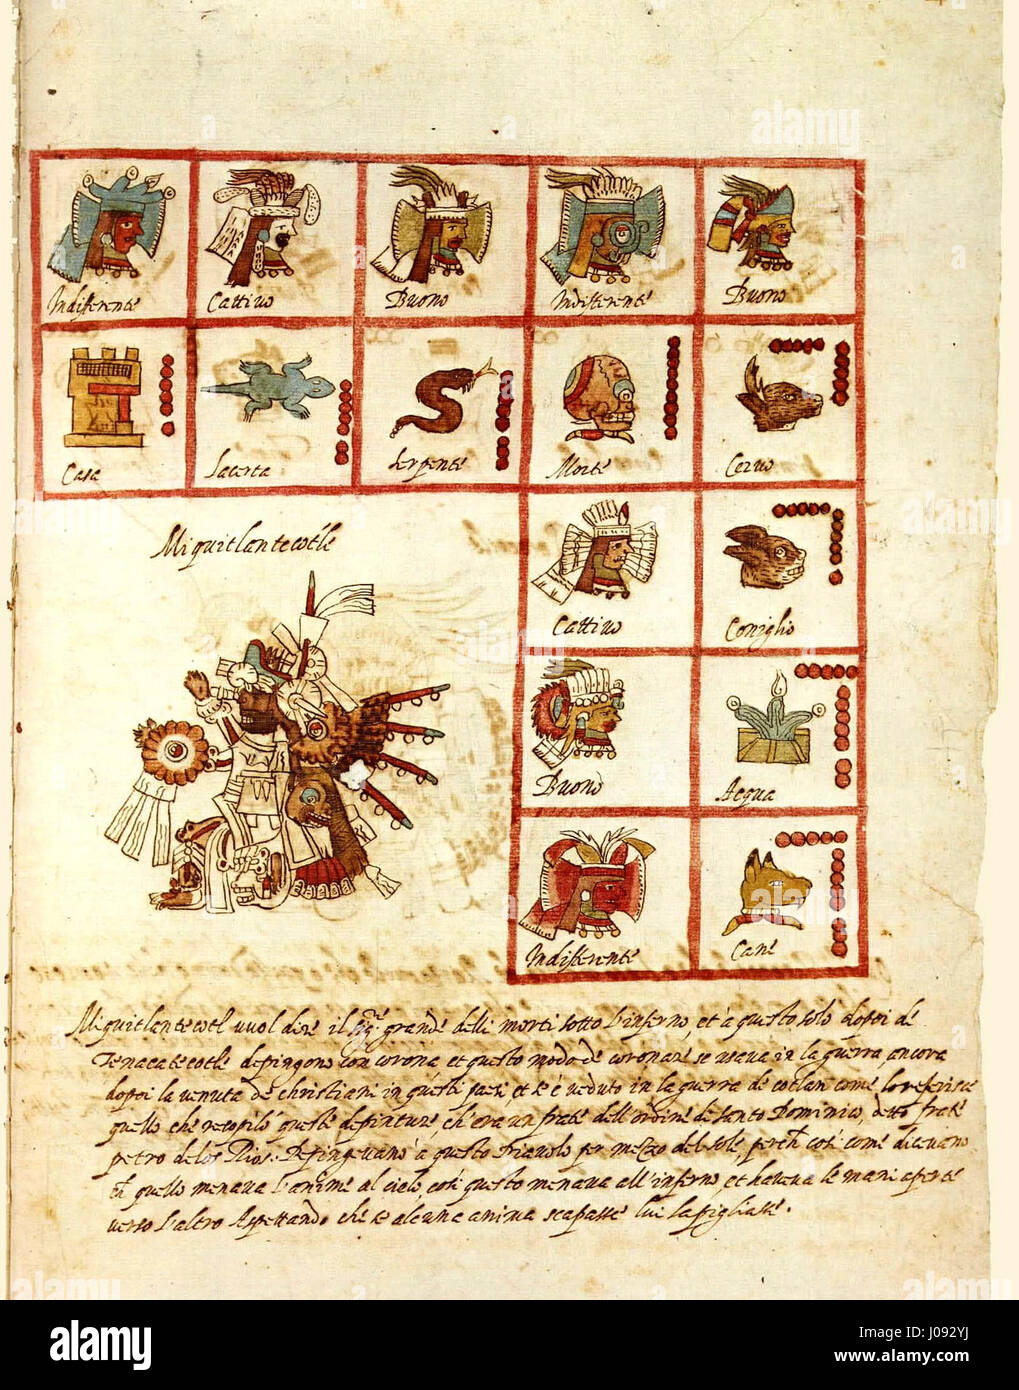 Indifferente Cattivo Buono Indifferente Buono
Casa Lacerta Serpente Morte Cervo
Miquitlantecotle
Cattivo Coniglio
Buono Acqua
Indifferente Cane
Miquitlantecotl vuol dire il sigre grande delli morti sotto l'inferno, et a questo solo dopoi de
Tenacatecotle depingono con corona et questo modo de coronare se usava in la guerra ancora
dopoi la venuta de christiani in questi paesi et s'è veduto in la guerra de cotlan come lo referisce
quello che recopilò queste depinture, ch'era un frate dell'ordine de Santo Dominico, detto frate
petro de los Rios. Depingevano a questo diavolo per mezzo del sole, perch così come dicevano
ch quello menava l'anime al cielo, così questo menava all'inferno, et haveva le mani aperte
verso l'altro Aspettando che se alcuna anima scapasse lui la pigliasse.
alamy
Image ID: J092YJ
www.alamy.com